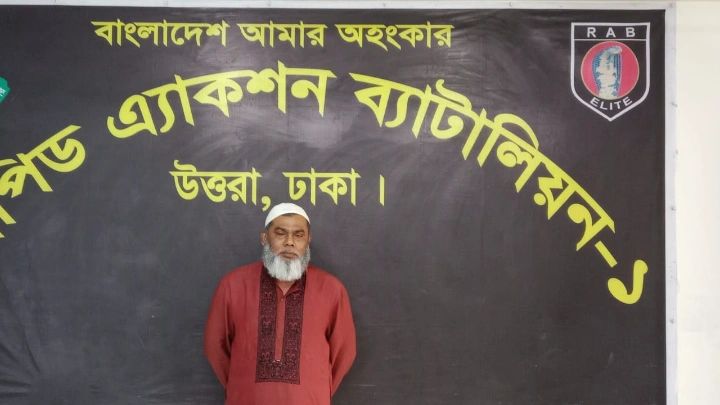 বাংলাদেশ আমার অহংকার
এ্যাকশন ব্যাটালিয়ন-১
উত্তরা, ঢাকা।
RAB
ELITE